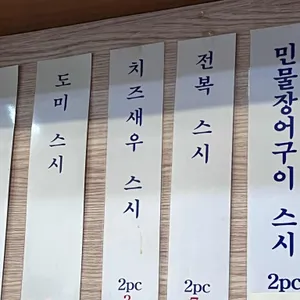 도미 스시
치즈새우 스시
2pc
전복 스시
2pc
민물장어구이 스시
2pc